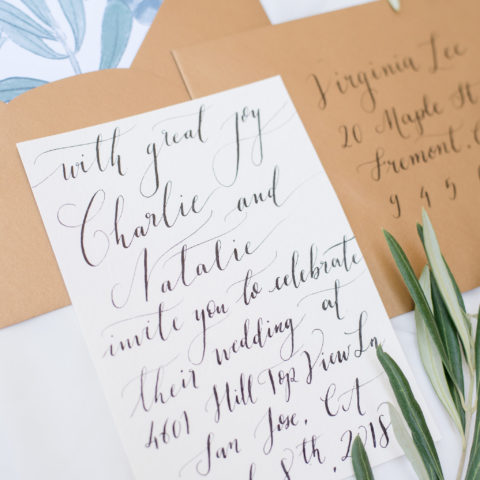 with great joy
Charlie and
Natalie
invite you to celebrate
their wedding at
4601 Hill Top View Ln
San Jose, CA
8th, 2018
Virginia Lee
20 Maple St
Fremont, C
9 4 5